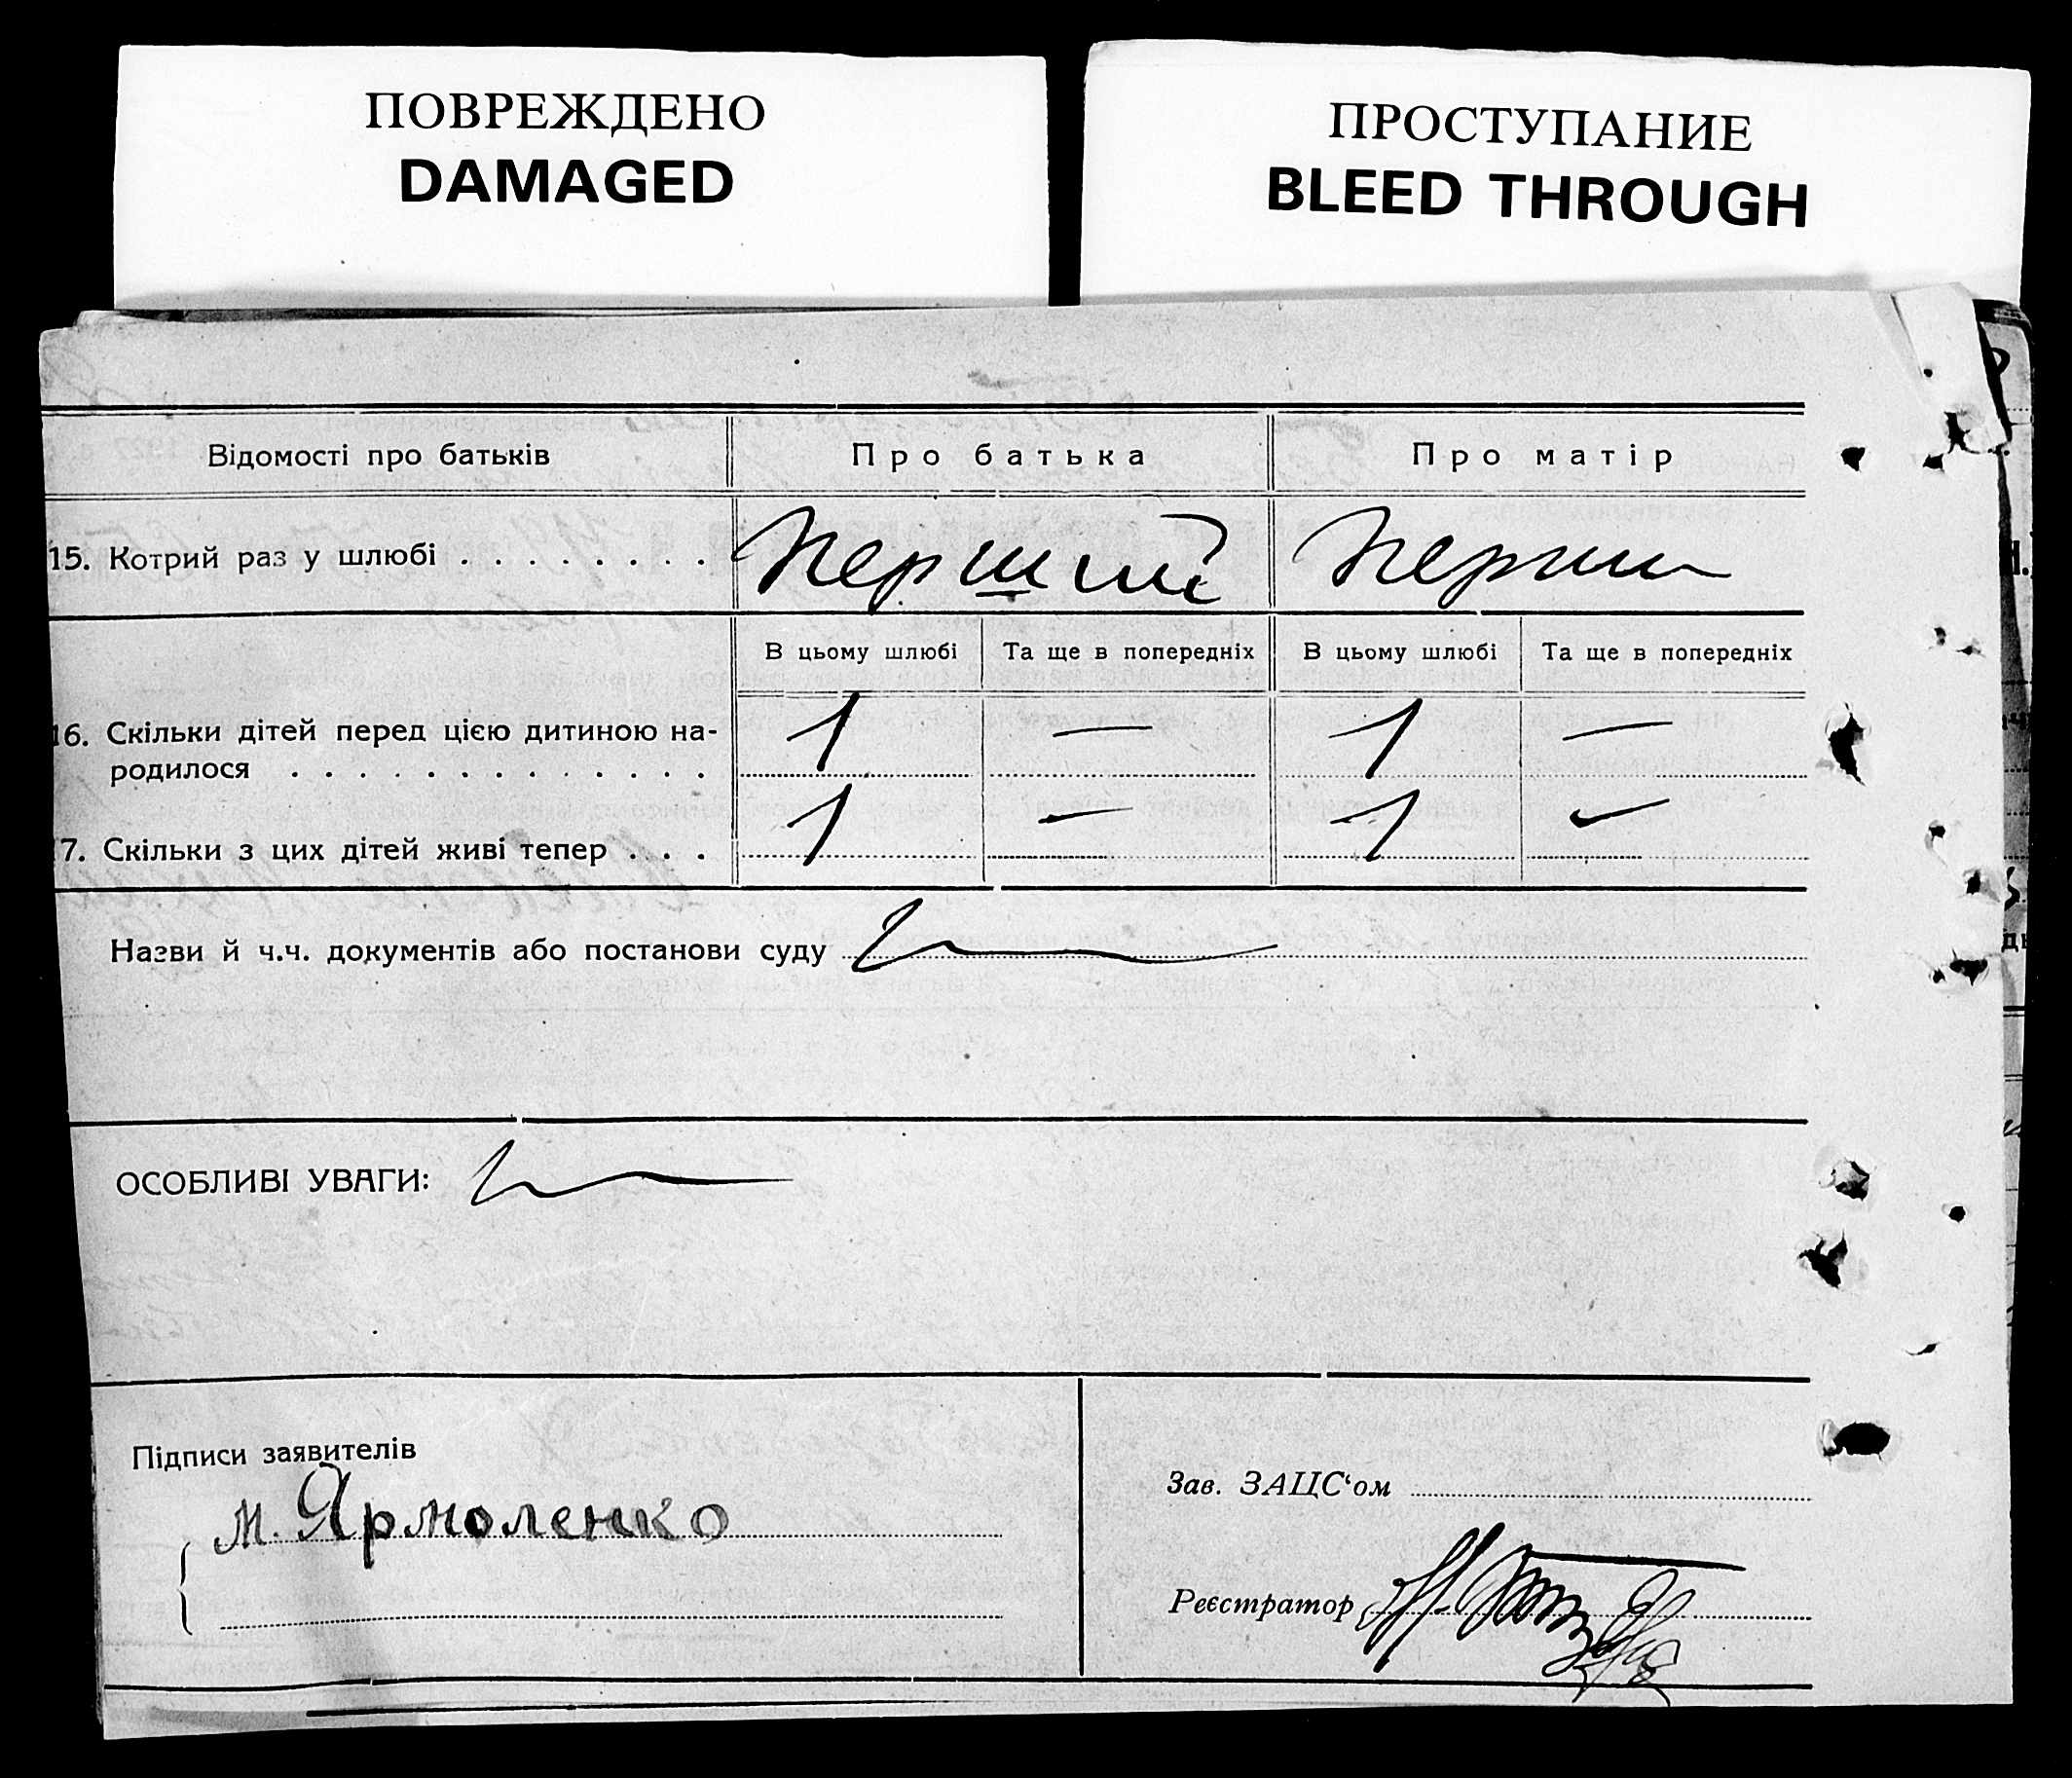 ПОВРЕЖДЕНО
DAMAGED
ПРОСТУПАНИЕ
BLEED THROUGH
Відомості про батьків Про батька Про матір
15. Котрий раз у шлюбі . . . . . . . . Перший Перши
В цьому шлюбі Та ще в попередніх В цьому шлюбі Та ще в попередніх
16. Скільки дітей перед цією дитиною на- 1 — 1 —
родилося . . . . . . . . . . . . .
7. Скільки з цих дітей живі тепер . . . 1 — 1 —
Назви й ч.ч. документів або постанови суду
ОСОБЛИВІ УВАГИ:
Підписи заявителів
М. Ярмоленко
Зав. ЗАЦС‘ом
Реєстратор